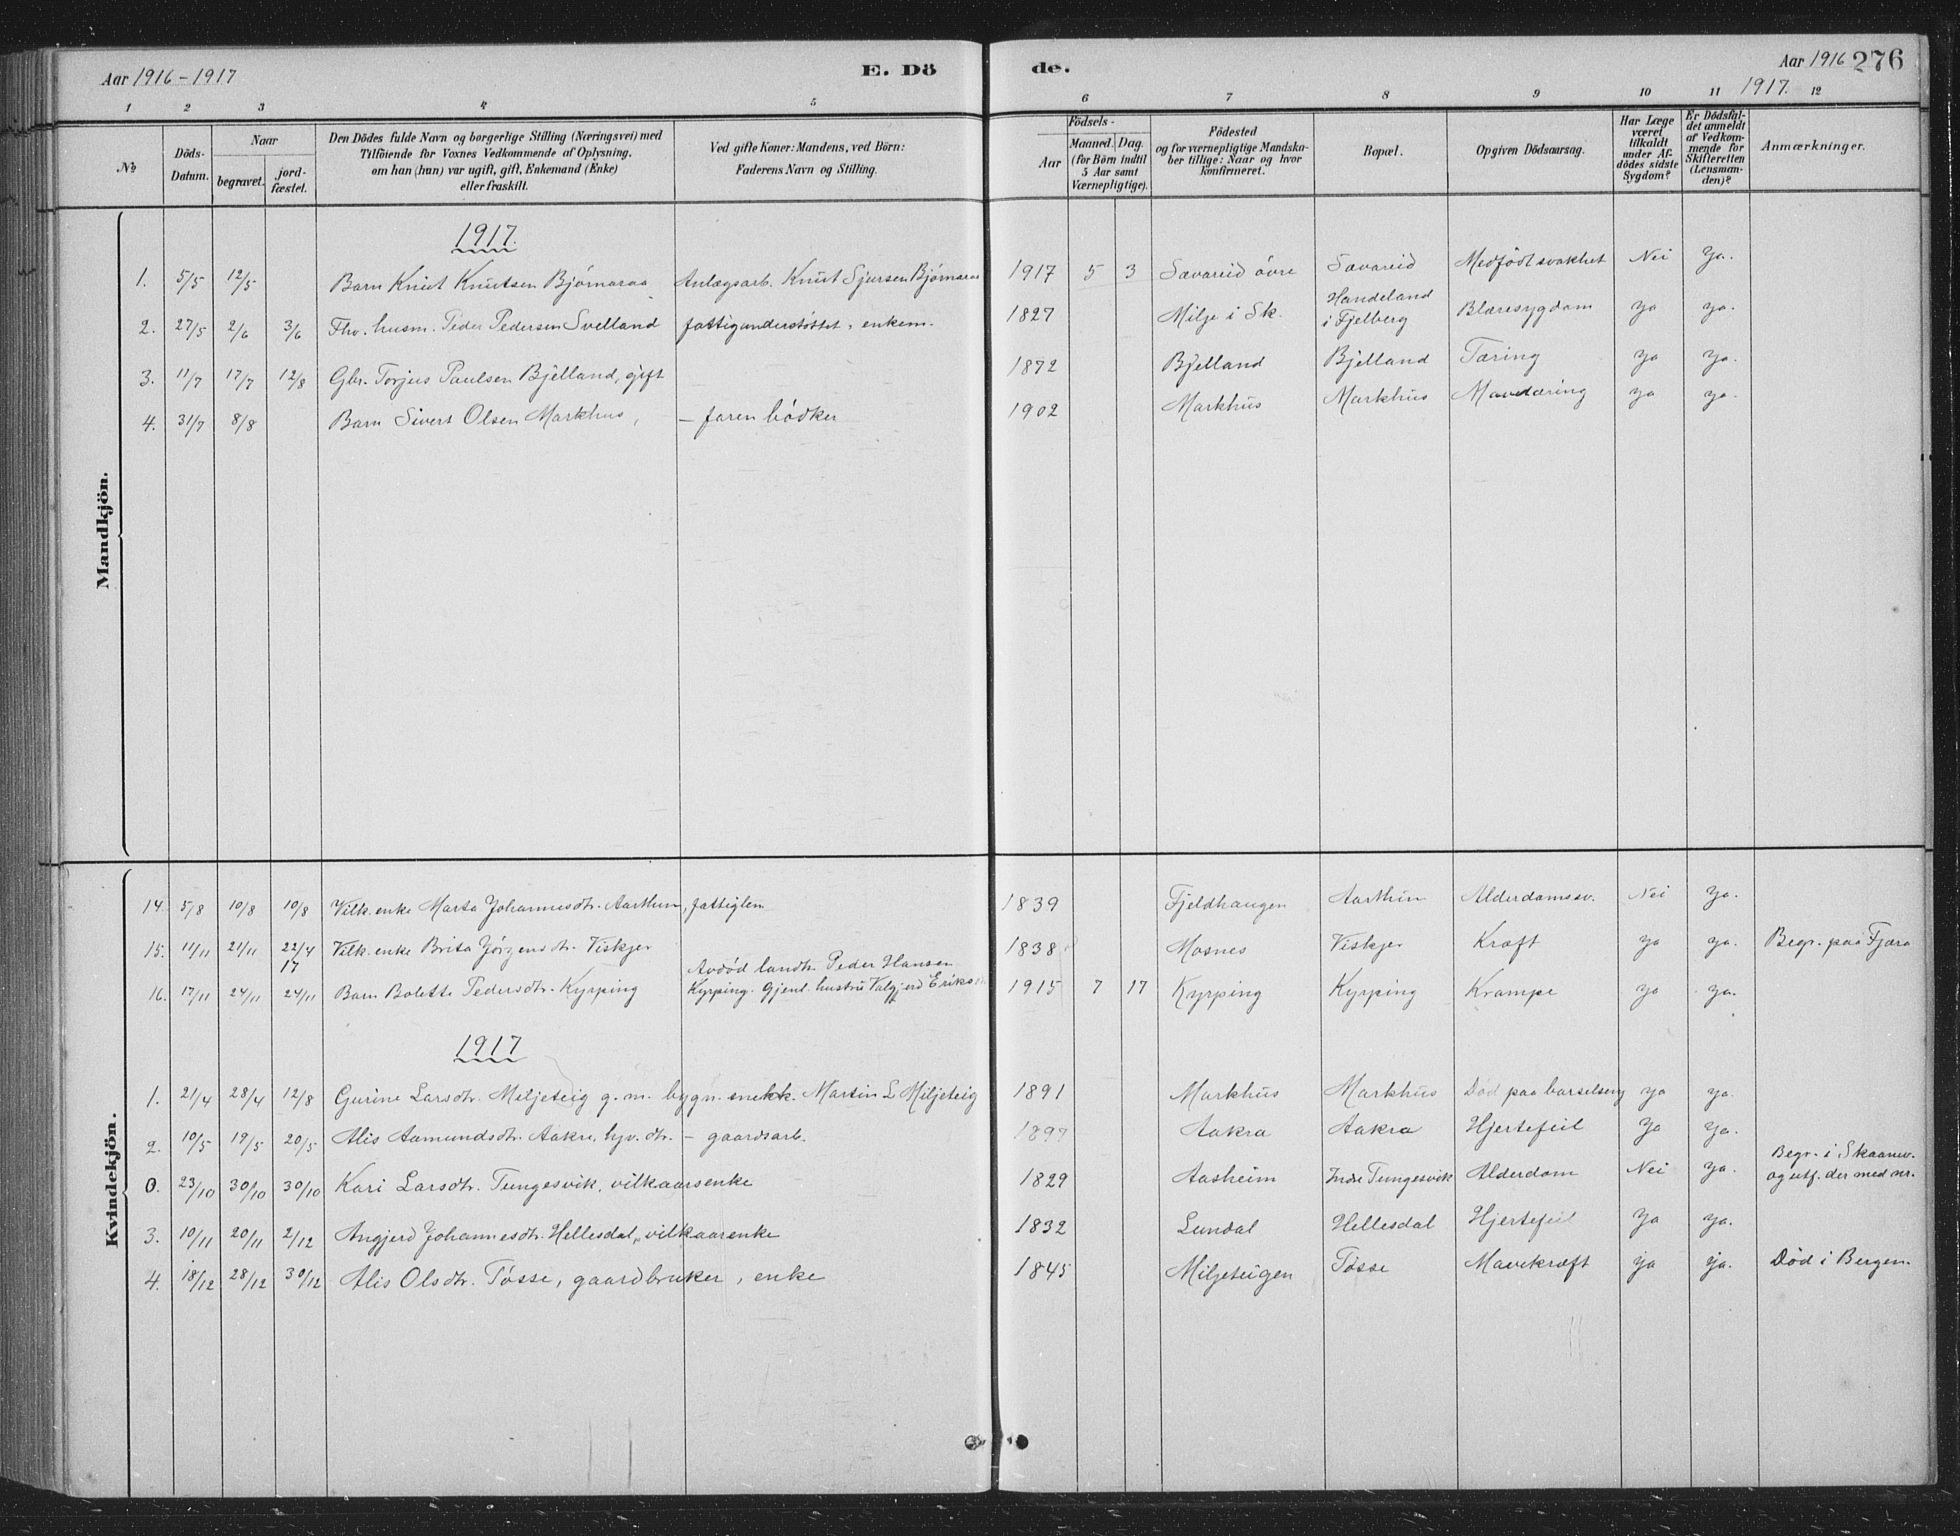 Aar 1916-1917 E. Dö de. Aar 1916 276
1917.
1 2 3 4 5 6 7 8 9 10 11 12
No
Döds-Datum.
Naar
begravet.
jord-fæstet.
Den Dödes fulde Navn og borgerlige Stilling (Næringsvei) med
Tilföiende for Voxnes Vedkommende af Oplysning,
om han (hun) var ugift, gift, Enkemand (Enke)
eller fraskilt.
Ved gifte Koner: Mandens, ved Börn:
Faderens Navn og Stilling.
Födsels-
Aar
Maaned. Dag.
(for Börn indtil
5 Aar samt
Værnepligtige).
Födested
og for værnepligtige Mandska-
ber tillige: Naar og hvor
konfirmeret.
Bopæl.
Opgiven Dödsaarsag.
Har Læge
været
tilkaldt
under Af-
dödes sidste
Sygdom?
Er Dödsfal-
det anmeldt
af Vedkom-
mende for
Skifteretten
(Lensman-
den)?
Anmærkninger.
Mandkjön.
1917.
1. 5/5 12/5 Barn Knut Knutsen Bjørnaraa Anlægsarb. Knut Sjursen Bjørnaraa 1917 5 3 Sævareid øvre Sævareid Medfödt svakhet Nei ja.
2. 27/5 2/6 3/6 Fhv. husm. Peder Pedersen Svelland fattigunderstöttet, enkem. 1827 Milje i Sk. Handeland i Fjelberg Blæresygdom ja ja.
3. 11/7 17/7 12/8 Gbr. Torjus Paulsen Bjelland, gift 1872 Bjelland Bjelland Tæring ja ja.
4. 31/7 8/8 Barn Sivert Olsen Markhus, - faren bödker 1902 Markhus Markhus Mavetæring ja ja.
Kvindekjön.
14. 5/8 10/8 10/8 Vilk. enke Marta Johannesdtr. Aarthun, fattiglem 1839 Fjeldhaugen Aarthun Alderdomssv. Nei ja.
15. 11/11 21/11 22/4 17 Vilk. enke Brita Jørgensdtr. Viskjer 1838 Mosnes Viskjer Kræft ja ja. Begr. paa Fjæra
16. 17/11 24/11 24/11 Barn Bolette Pedersdtr. Kyrping Avdød landh. Peder Hansen
Kyrping. Gjenl. hustru Valgjerd Eriks 1915 7 17 Kyrping Kyrping Krampe ja ja.
1917
1. 21/4 28/4 12/8 Gurine Larsdtr. Miljeteig g. m. bygn. snekk. Martin L Miljeteig 1891 Markhus Markhus Död paa barselseng ja ja.
2. 10/5 19/5 20/5 Alis Aamundsdtr. Aakre, hjv. dtr. - gaardsarb. 1897 Aakra Aakra Hjertefeil ja ja.
0. 23/10 30/10 30/10 Kari Larsdtr. Tungesvik, vilkaarsenke 1829 Aasheim Indre Tungesvik Alderdom Nei ja. Begr. i Skaanev.
og utf. der med nr.
3. 10/11 20/11 2/12 Angjerd Johannesdtr. Hellesdal, vilkaarenke 1832 Lundal Hellesdal Hjertefeil ja ja.
4. 18/12 28/12 30/12 Alis Olsdtr. Tøsse, gaardbruker, enke 1845 Miljeteigen Tøsse Mavekræft ja ja. Död i Bergen.